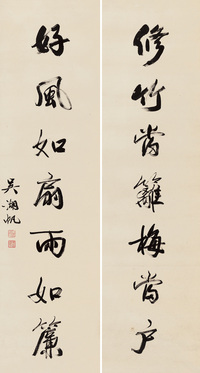 修竹當籬梅當户
好風如扇雨如簾
吳湖帆